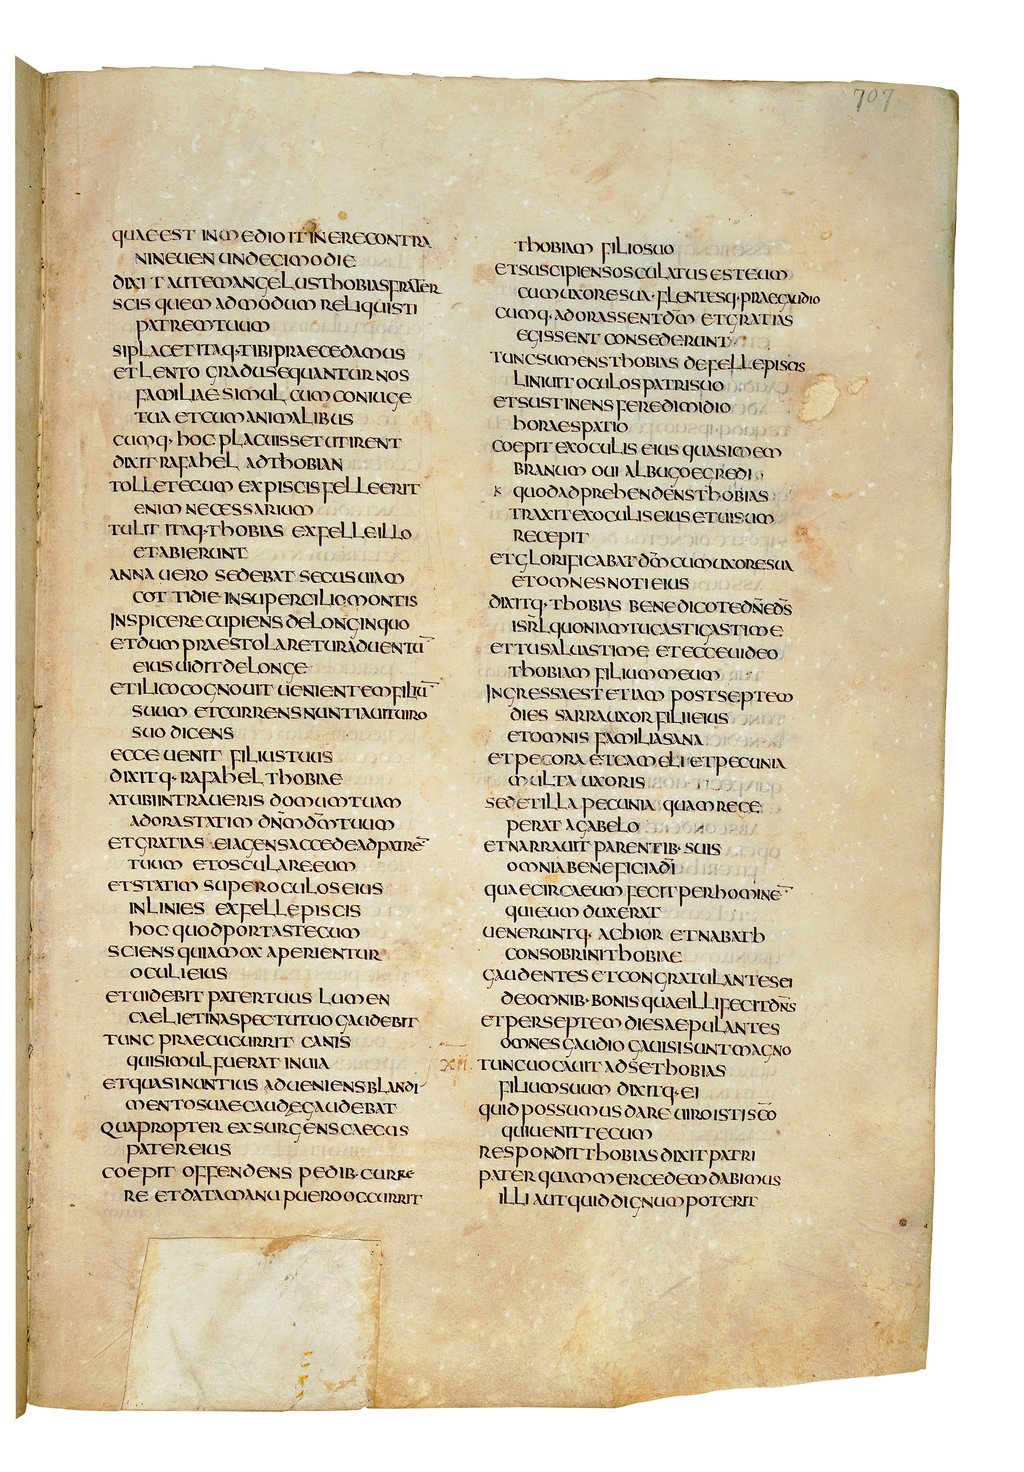 707
QUAE EST IN MEDIO ITINERE CONTRA
NINEUEN UNDECIMO DIE
DIXIT AUTEM ANGELUS THOBIAS FRATER
SCIS QUEM ADMODUM RELIQUISTI
PATREM TUUM
SI PLACET ITAQ· TIBI PRAECEDAMUS
ET LENTO GRADU SEQUANTUR NOS
FAMILIAE SIMUL CUM CONIUGE
TUA ET CUM ANIMALIBUS
CUMQ· HOC PLACUISSET UT IRENT
DIXIT RAFAHEL AD THOBIAN
TOLLE TECUM EX PISCIS FELLE ERIT
ENIM NECESSARIUM
TULIT ITAQ· THOBIAS EX FELLE ILLO
ET ABIERUNT
ANNA UERO SEDEBAT SECUS UIAM
COTTIDIE IN SUPERCILIO MONTIS
INSPICERE CUPIENS DE LONGINQUO
ET DUM PRAESTOLARETUR ADUENTŪ
EIUS UIDIT DE LONGE
ET ILICO COGNOUIT UENIENTEM FILIŪ
SUUM ET CURRENS NUNTIAUIT UIRO
SUO DICENS
ECCE UENIT FILIUS TUUS
DIXITQ· RAFAHEL THOBIAE
AT UBI INTRAUERIS DOMUM TUAM
ADORA STATIM DN̄M D̄M TUUM
ET GRATIAS EI AGENS ACCEDE AD PATRĒ
TUUM ET OSCULARE EUM
ET STATIM SUPER OCULOS EIUS
INLINIES EX FELLE PISCIS
HOC QUOD PORTAS TECUM
SCIENS QUIA MOX APERIENTUR
OCULI EIUS
ET UIDEBIT PATER TUUS LUMEN
CAELI ET IN ASPECTU TUO GAUDEBIT
TUNC PRAECUCURRIT CANIS
QUI SIMUL FUERAT IN UIA
ET QUASI NUNTIUS ADUENIENS BLANDI
MENTO SUAE CAUDE GAUDEBAT
QUAPROPTER EXSURGENS CAECUS
PATER EIUS
COEPIT OFFENDENS PEDIB· CURRE
RE ET DATA MANU PUERO OCCURRIT
THOBIAM FILIO SUO
ET SUSCIPIENS OSCULATUS EST EUM
CUM UXORE SUA· FLENTESQ· PRAE GAUDIO
CUMQ· ADORASSENT D̄M ET GRATIAS
EGISSENT CONSEDERUNT
TUNC SUMENS THOBIAS DE FELLE PISCIS
LINIUIT OCULOS PATRIS UO
ET SUSTINENS FERE DIMIDIO
HORAE SPATIO
COEPIT EX OCULIS EIUS QUASI MEM
BRANUM OUI ALBUGO EGREDI
QUOD ADPREHENDENS THOBIAS
TRAXIT EX OCULIS EIUS ET UISUM
RECEPIT
ET GLORIFICABAT D̄M CUM UXORE SUA
ET OMNES NOTI EIUS
DIXITQ· THOBIAS BENEDICO TE DN̄E D̄S
ISR̄L QUONIAM TU CASTIGASTI ME
ET TU SALUASTI ME ET ECCE UIDEO
THOBIAM FILIUM MEUM
INGRESSA EST ETIAM POST SEPTEM
DIES SARRA UXOR FILII EIUS
ET OMNIS FAMILIA SANA
ET PECORA ET CAMELI ET PECUNIA
MULTA UXORIS
SED ET ILLA PECUNIA QUAM RECE
PERAT A GABELO
ET NARRAUIT PARENTIB· SUIS
OMNIA BENEFICIA D̄I
QUAE CIRCA EUM FECIT PER HOMINĒ
QUI EUM DUXERAT
UENERUNTQ· ACHIOR ET NABATH
CONSOBRINI THOBIAE
GAUDENTES ET CONGRATULANTES EI
DE OMNIB· BONIS QUAE ILLI FECIT DN̄S
ET PER SEPTEM DIES AEPULANTES
OMNES GAUDIO GAUISI SUNT MAGNO
XII TUNC UOCAUIT AD SE THOBIAS
FILIUM SUUM DIXITQ· EI
QUID POSSUMUS DARE UIRO ISTI SC̄O
QUI UENIT TECUM
RESPONDIT THOBIAS DIXIT PATRI
PATER QUAM MERCEDEM DABIMUS
ILLI AUT QUID DIGNUM POTERIT